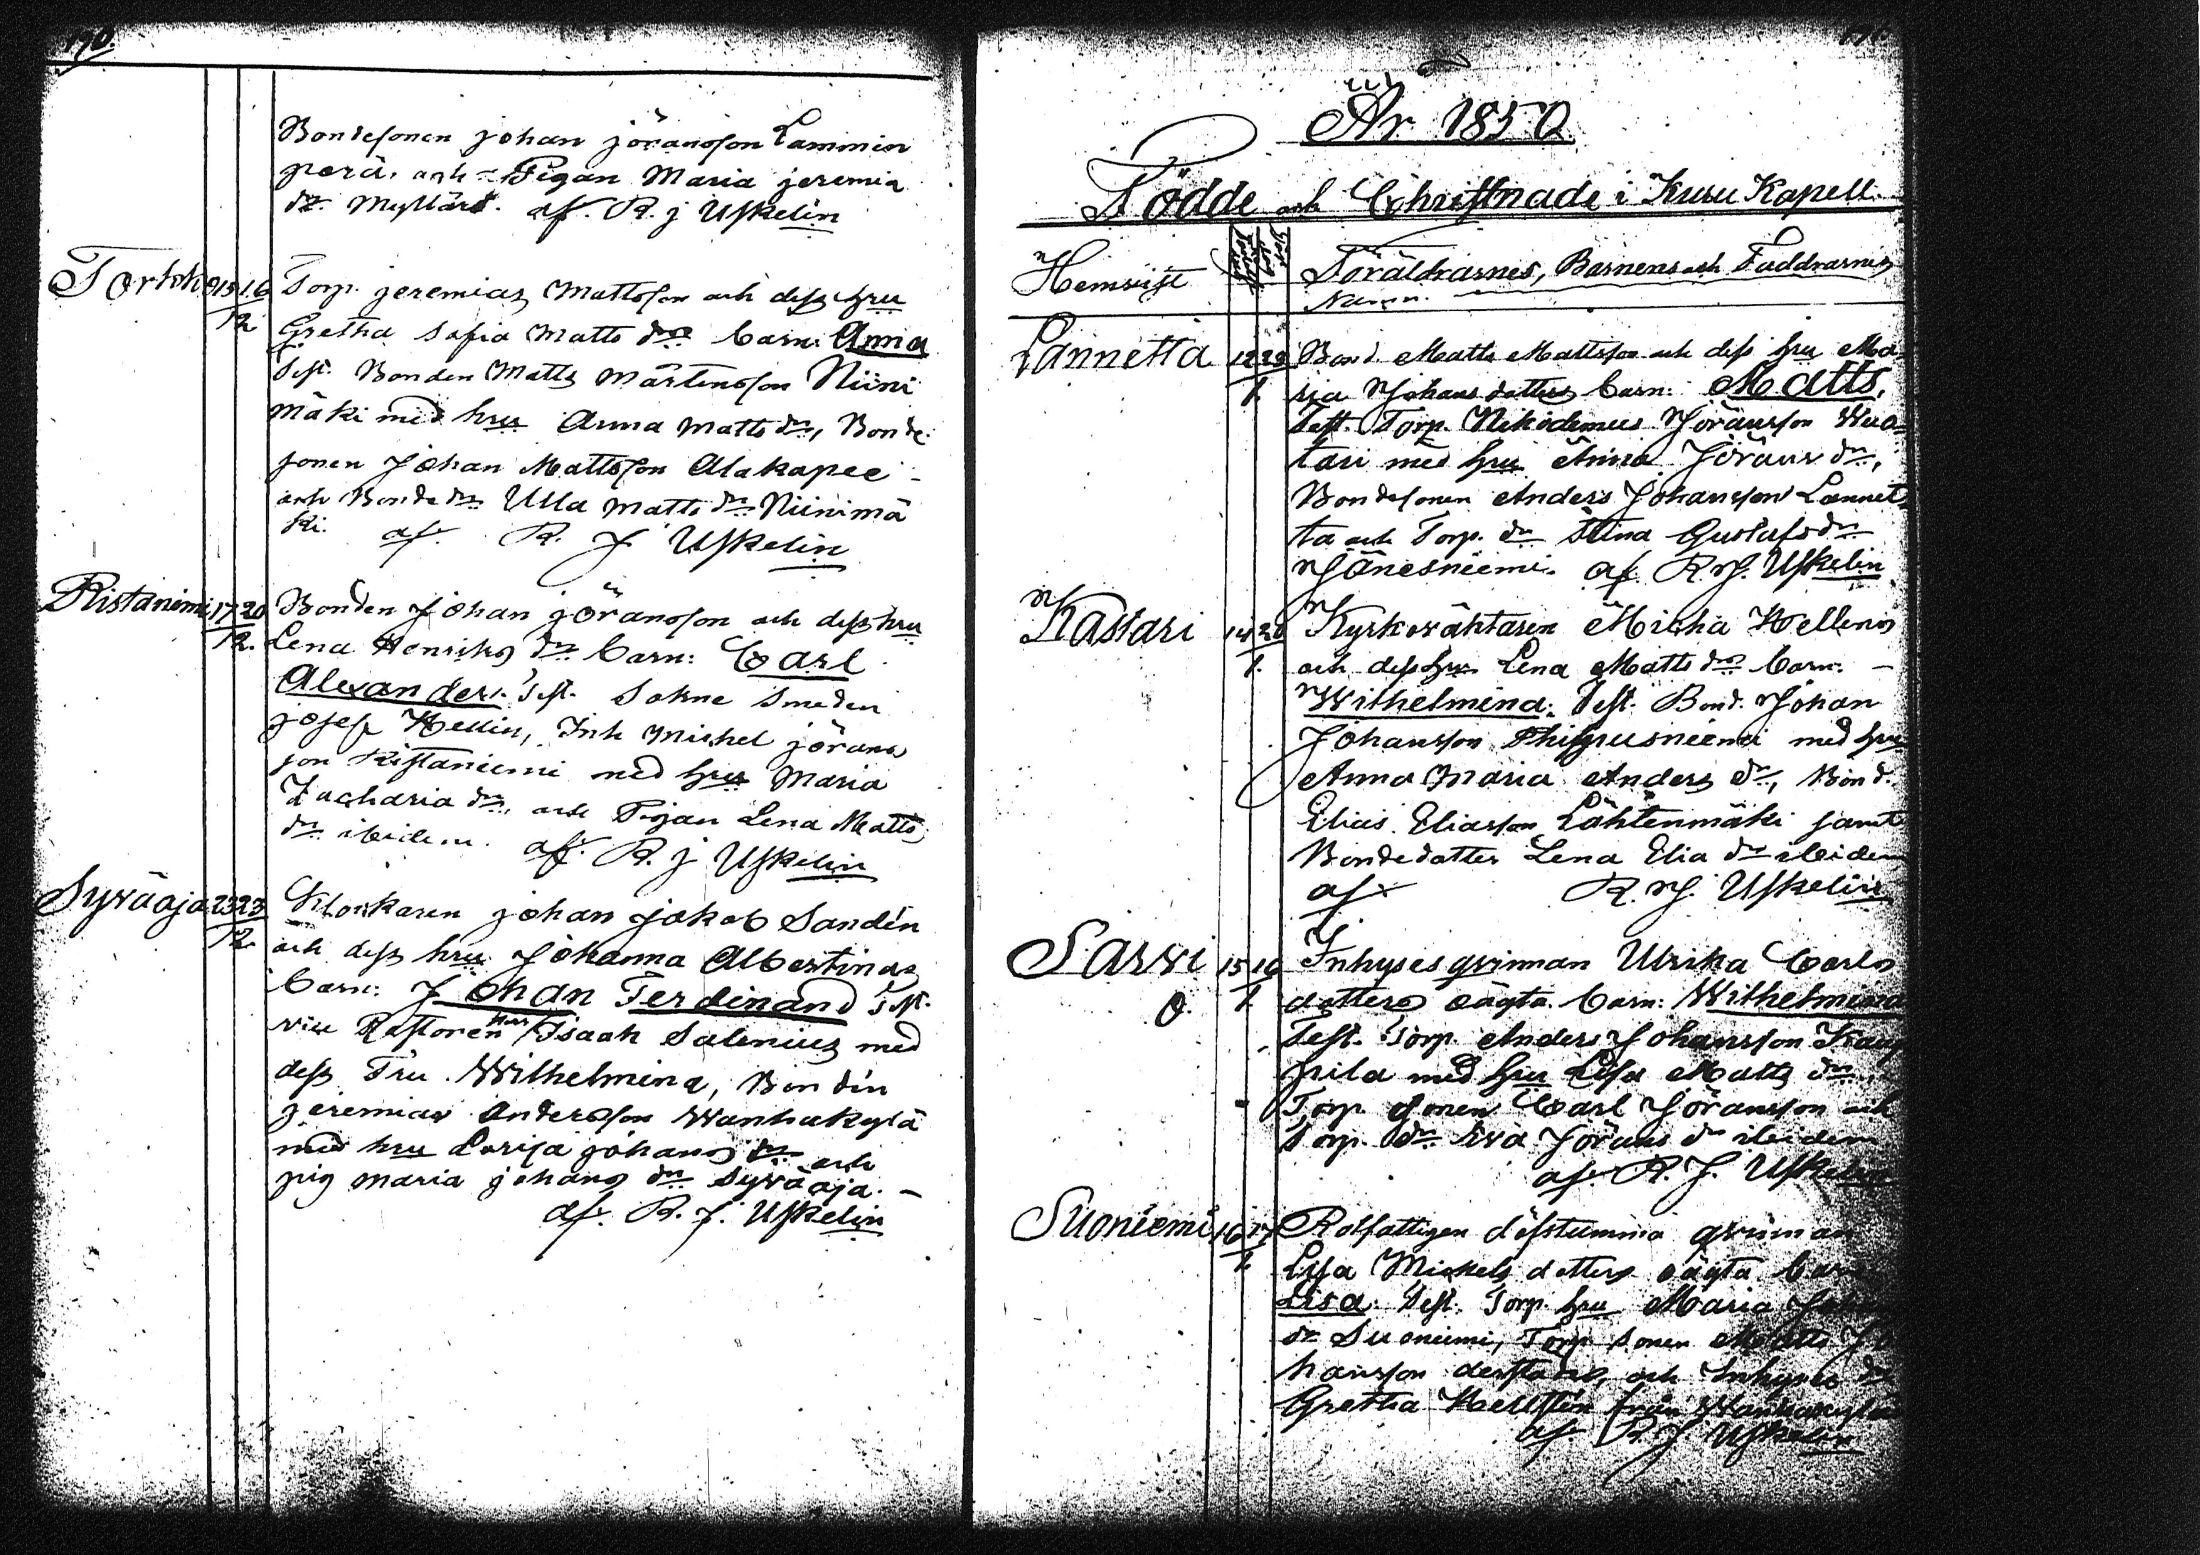 170.
Bondesonen johan jöransson Lammin
perä, och Pigan Maria jeremia
dr. Myllärä. af. R. j Uskelin
Torkko 15 16 Torp. jeremias Mattsson och dess hru
12 Gretha Sofia Matts drs barn: Anna
Test. Bonden Matts Mårtensson Niini
mäki med hru Anna Matts dr, Bonde
sonen Johan Mattsson Alakapee
och Bonde dr Ulla Matts dr Niinimä
ki. af. R. J Uskelin
Ristaniemi 17 20 Bonden Johan jöransson och dess hru
12. Lena Henriks dr barn: Carl
Alexander. Test. Sokne Smeden
josef Hellin, Inh Michel jörans
son Ristaniemi med hru Maria
Zacharia dr, och Pigan Lena Matts
dr ibidem. af. R. j Uskelin
Syväoja 23 23 Klockaren johan jakob Sandén
12. och dess hru Johanna Albertinas
barn: Johan Ferdinand Test.
vice Pastoren Herr Isaak Salenius med
dess Fru Wilhelmina, Bonden
jeremias Andersson Wanhakylä
med hru Lovisa johans dr och
pig maria johans dr Syväoja.
af. R. j. Uskelin
171.
År 1850.
Födde och Christnade i Kuru Kapell.
Hemvist
Föräldrarnes, Barnens och Faddrarnes
Namn.
Lännettä 12 23 Bond. Matts Mattsson och dess hru Ma-
1. ria Johans dotters barn: Matts,
Test. Torp. Nikodemus Jöransson Wuo-
tari med hru Anna Jörans dr,
Bondesonen Anders Johansson Lännet
ta och Torp. dr Stina Gustafs dr
Jänesniemi. af R. J. Uskelin
Kastari 14 20 Kyrkoväktaren Micha Hellens
1. och dess hru Lena Matts drs barn:
Wilhelmina. Test. Bond. Johan
Johansson med hru
Anna Maria Anders dr, Bond.
Elias Eliasson Lähtenmäki samt
Bondedotter Lena Elia dr ibidem
af R. J. Uskelin
Sarvi 15 16 Inhyses qvinnan Ulrika Carls
O. 1. dotters oägta barn: Wilhelmina
Test. Torp Anders Johansson Kaup
pila med hru Lisa Matts dr,
Torp. sonen Carl Jöransson och
Torp. dr Eva Jörans dr ibidem
af R. J. Uskelin
Suoniemi 16 17 Rotfattigen döfstumma qvinnan
1. Lisa Mickels dotters oägta barn
Lisa. Test. Torp. hru Maria Joh
dr Suoniemi, Torp. sonen Matts Jo
hansson derstädes, och Inhyses dr
Gretha Hellstén från Wanhakylä
af R J Uskelin